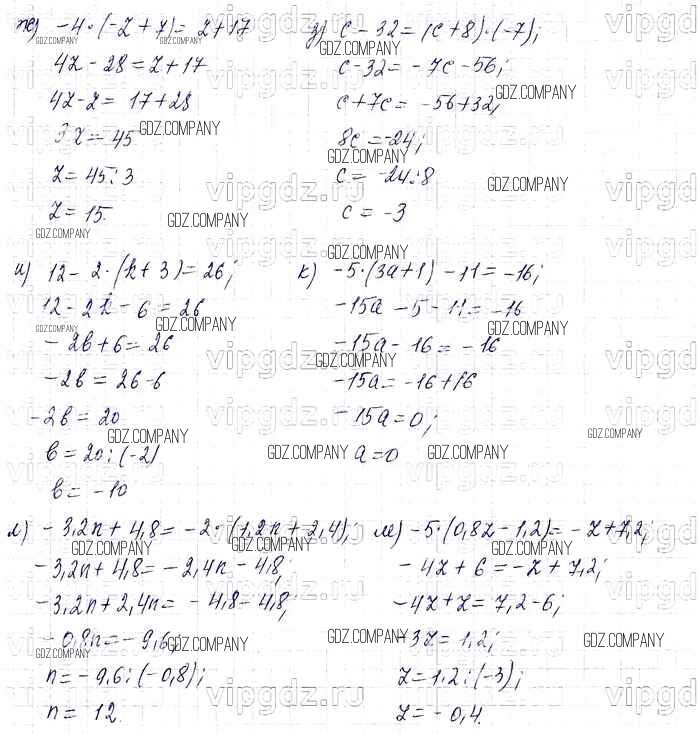 ж) -4·(-z+7)= z+17
4z-28=z+17
4z-z= 17+28
3z=45
z=45:3
z=15.
з) c-32=(c+8)·(-7);
c-32= -7c-56;
c+7c= -56+32;
8c=-24;
c= -24:8
c= -3
и) 12-2·(k+3)=26;
12-2k-6=26
-2k+6=26
-2k=26-6
-2k=20
k=20:(-2)
k= -10
к) -5·(3a+1)-11=-16;
-15a-5-11=-16
-15a-16=-16
-15a=-16+16
-15a=0;
a=0
л) -3,2n+4,8=-2·(1,2n+2,4);
-3,2n+4,8=-2,4n-4,8;
-3,2n+2,4n= -4,8-4,8;
-0,8n=-9,6;
n=-9,6:(-0,8);
n= 12.
м) -5·(0,8z-1,2)=-z+7,2;
-4z+6=-z+7,2;
-4z+z=7,2-6;
-3z=1,2;
z=1,2:(-3);
z=-0,4.
GDZ.COMPANY
vipgdz.ru